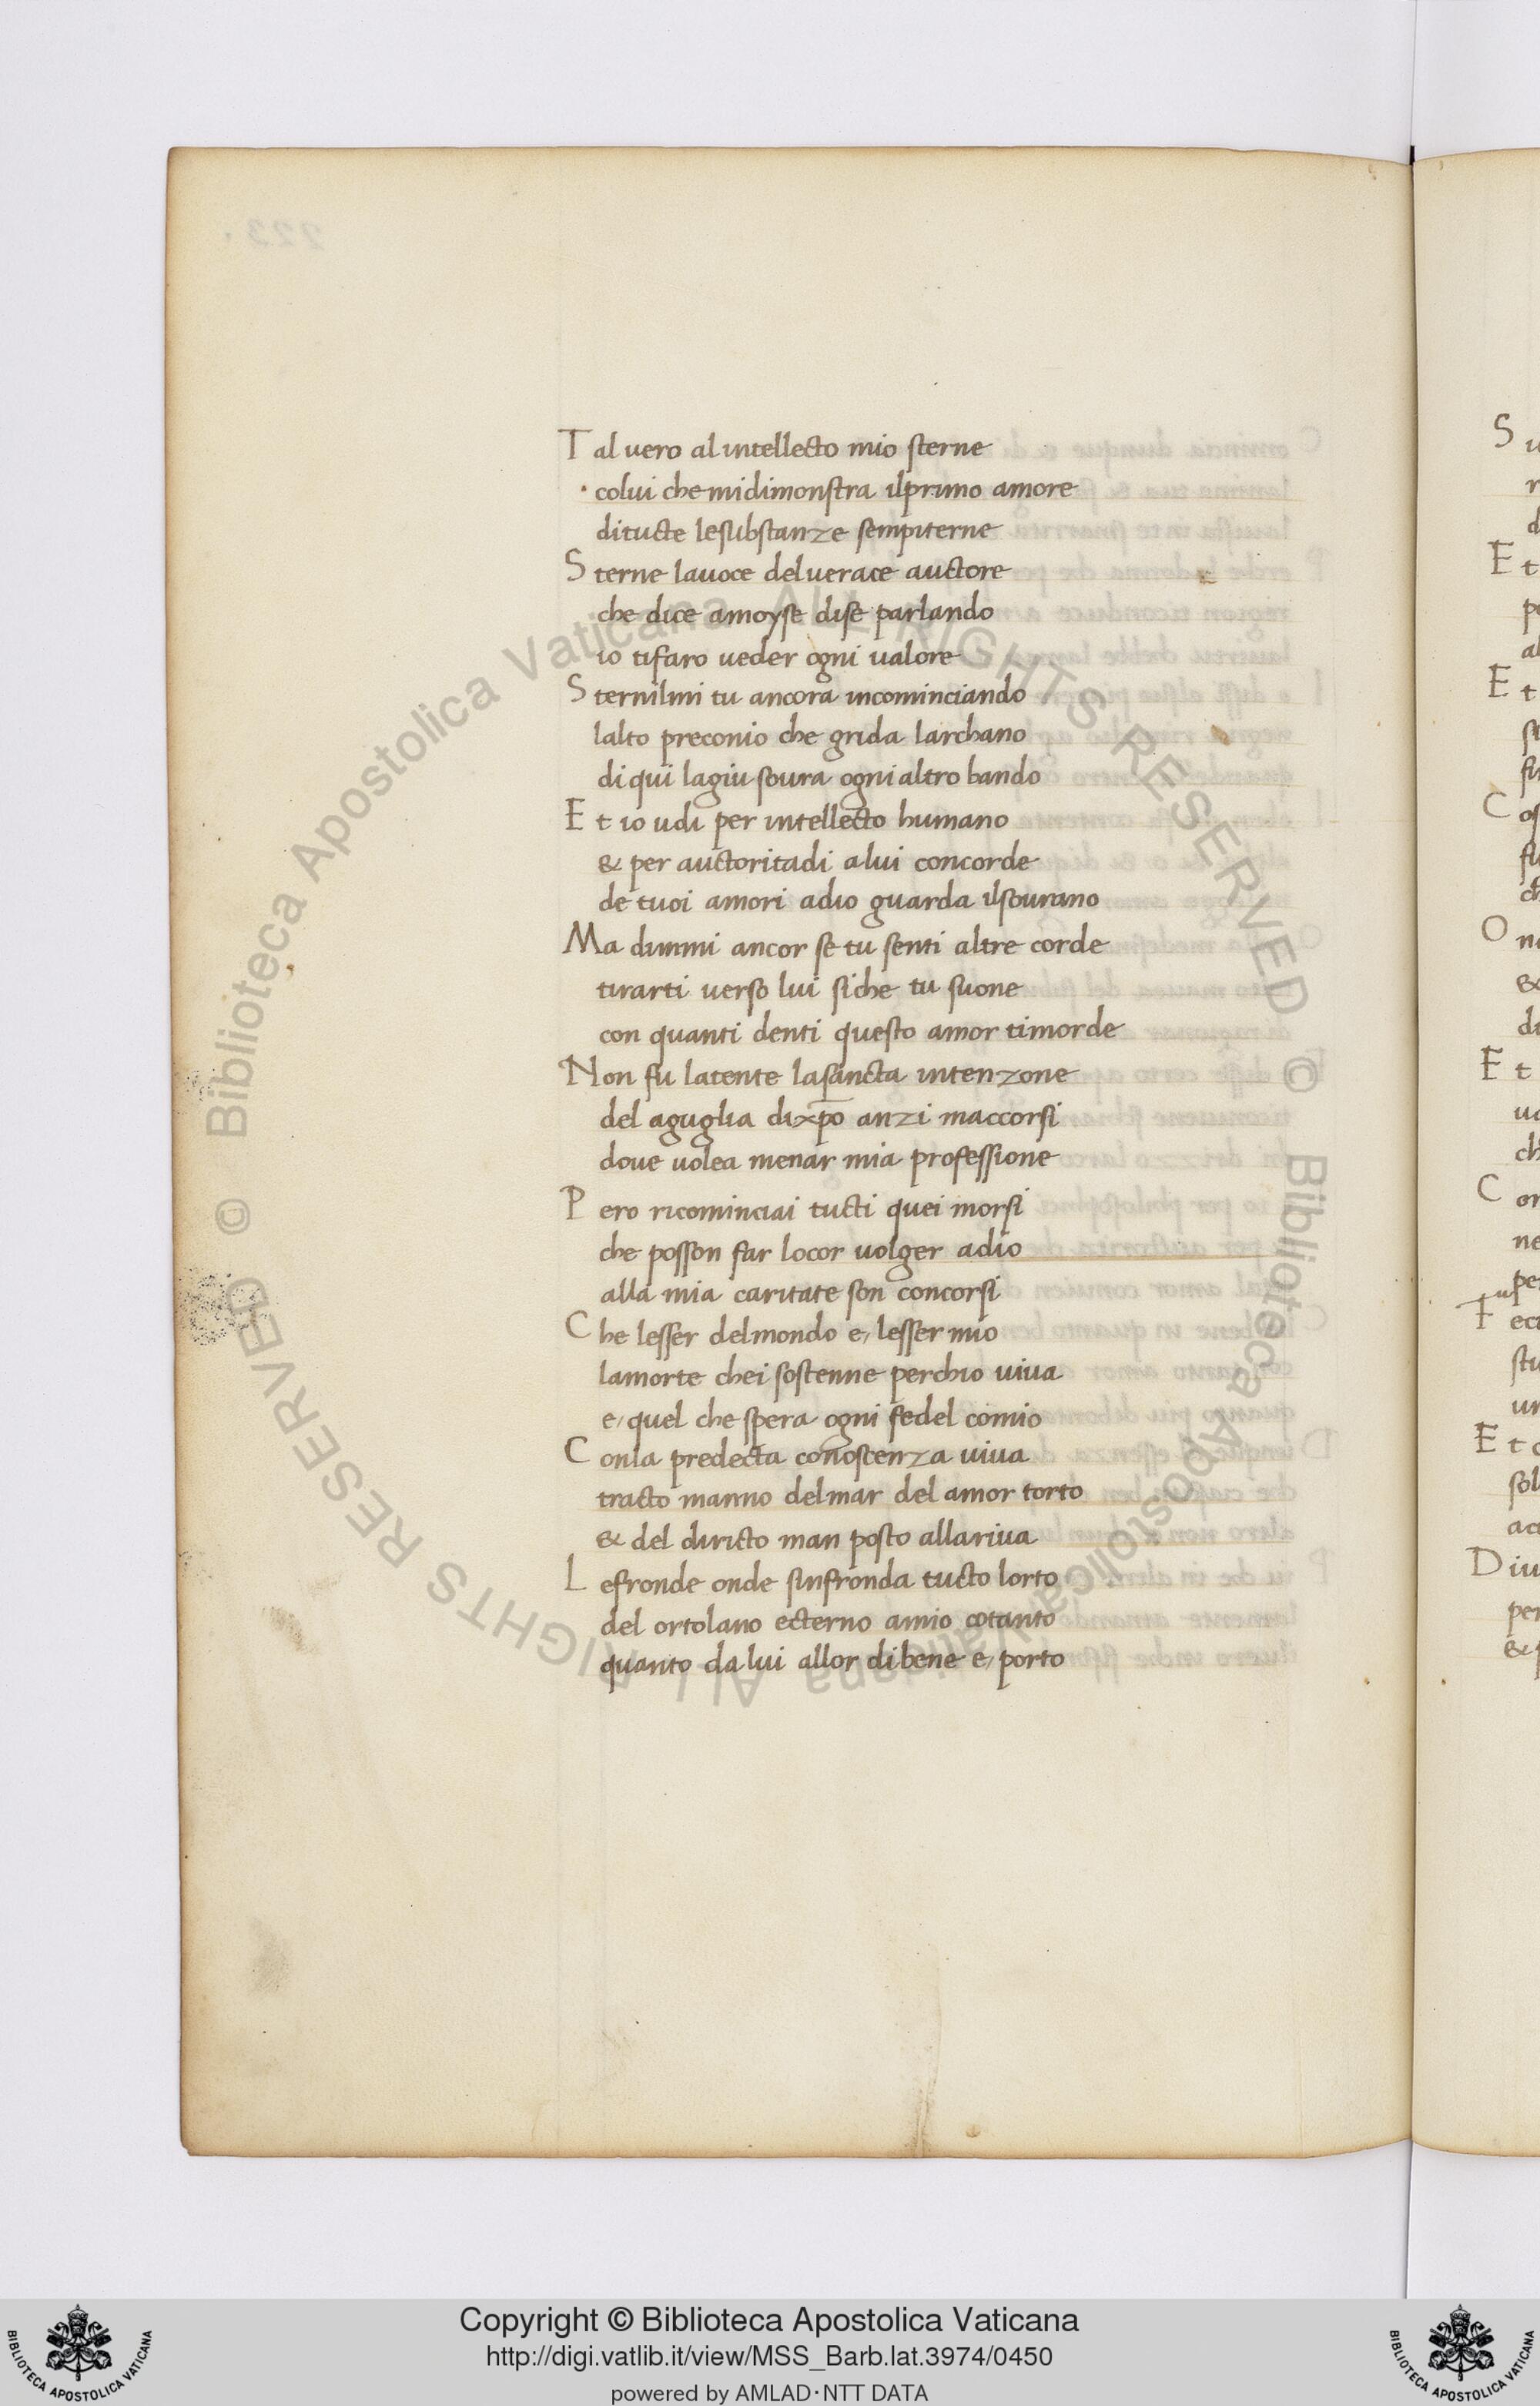 Tal uero al intellecto mio sterne
colui che midimonstra ilprimo amore
ditucte lesubstanze sempiterne
Sterne lauoce deluerace auctore
che dice amoyse dise parlando
io tifaro ueder ogni ualore
Sternilmi tu ancora incominciando
lalto preconio che grida larchano
di qui lagiu soura ogni altro bando
Et io udi per intellecto humano
& per auctoritadi alui concorde
de tuoi amori adio guarda ilsourano
Ma dimmi ancor se tu senti altre corde
tirarti uerso lui siche tu suone
con quanti denti questo amor timorde
Non fu latente lasancta intenzone
del aguglia dixp̄o anzi maccorsi
doue uolea menar mia professione
Pero ricominciai tucti quei morsi
che posson far locor uolger adio
alla mia caritate son concorsi
Che lesser delmondo e, lesser mio
lamorte chei sostenne perchio uiua
e, quel che spera ogni fedel comio
Conla predecta conoscenza uiua
tracto manno delmar del amor torto
& del diricto man posto allariua
Lefronde onde sinfronda tucto lorto
del ortolano ecterno amio cotanto
quanto da lui allor di bene e, porto
Copyright © Biblioteca Apostolica Vaticana
http://digi.vatlib.it/view/MSS_Barb.lat.3974/0450
powered by AMLAD·NTT DATA
BIBLIOTECA APOSTOLICA VATICANA
BIBLIOTECA APOSTOLICA VATICANA
© Biblioteca Apostolica Vaticana ALL RIGHTS RESERVED © Biblioteca Apostolica Vaticana ALL RIGHTS RESERVED